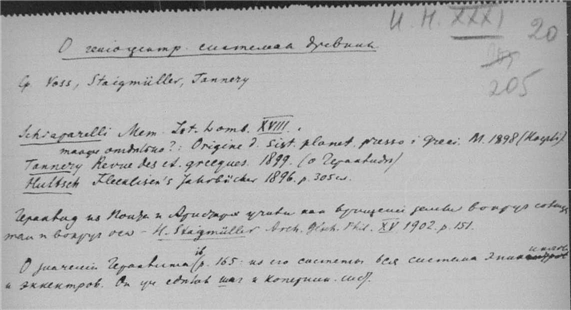 И. Н. XXXI 20
205
О геліоцентр. системах древнихъ
Ср. Voss, Staigmüller, Tannery
Schiaparelli Mem. Ist. Lomb. XVIII.
также отдѣльно?: Origine d. sist. planet. presso i Greci. M. 1898 (Hoepli)
Tannery Revue des ét. grecques. 1899. (о Гераклидѣ)
Hultsch Fleckeisen's Jahrbücher 1896. p. 305
Гераклид из Понта и учили как о вращеніи земли вокруг солнца
так и вокруг оси – H. Staigmüller Arch. Gesch. Phil. XV 1902. p. 151.
О значеніи Гераклита ib. p. 165: из его системы вся система
и эксцентров. Он уже сдѣлал шаг к Коперник. сист.